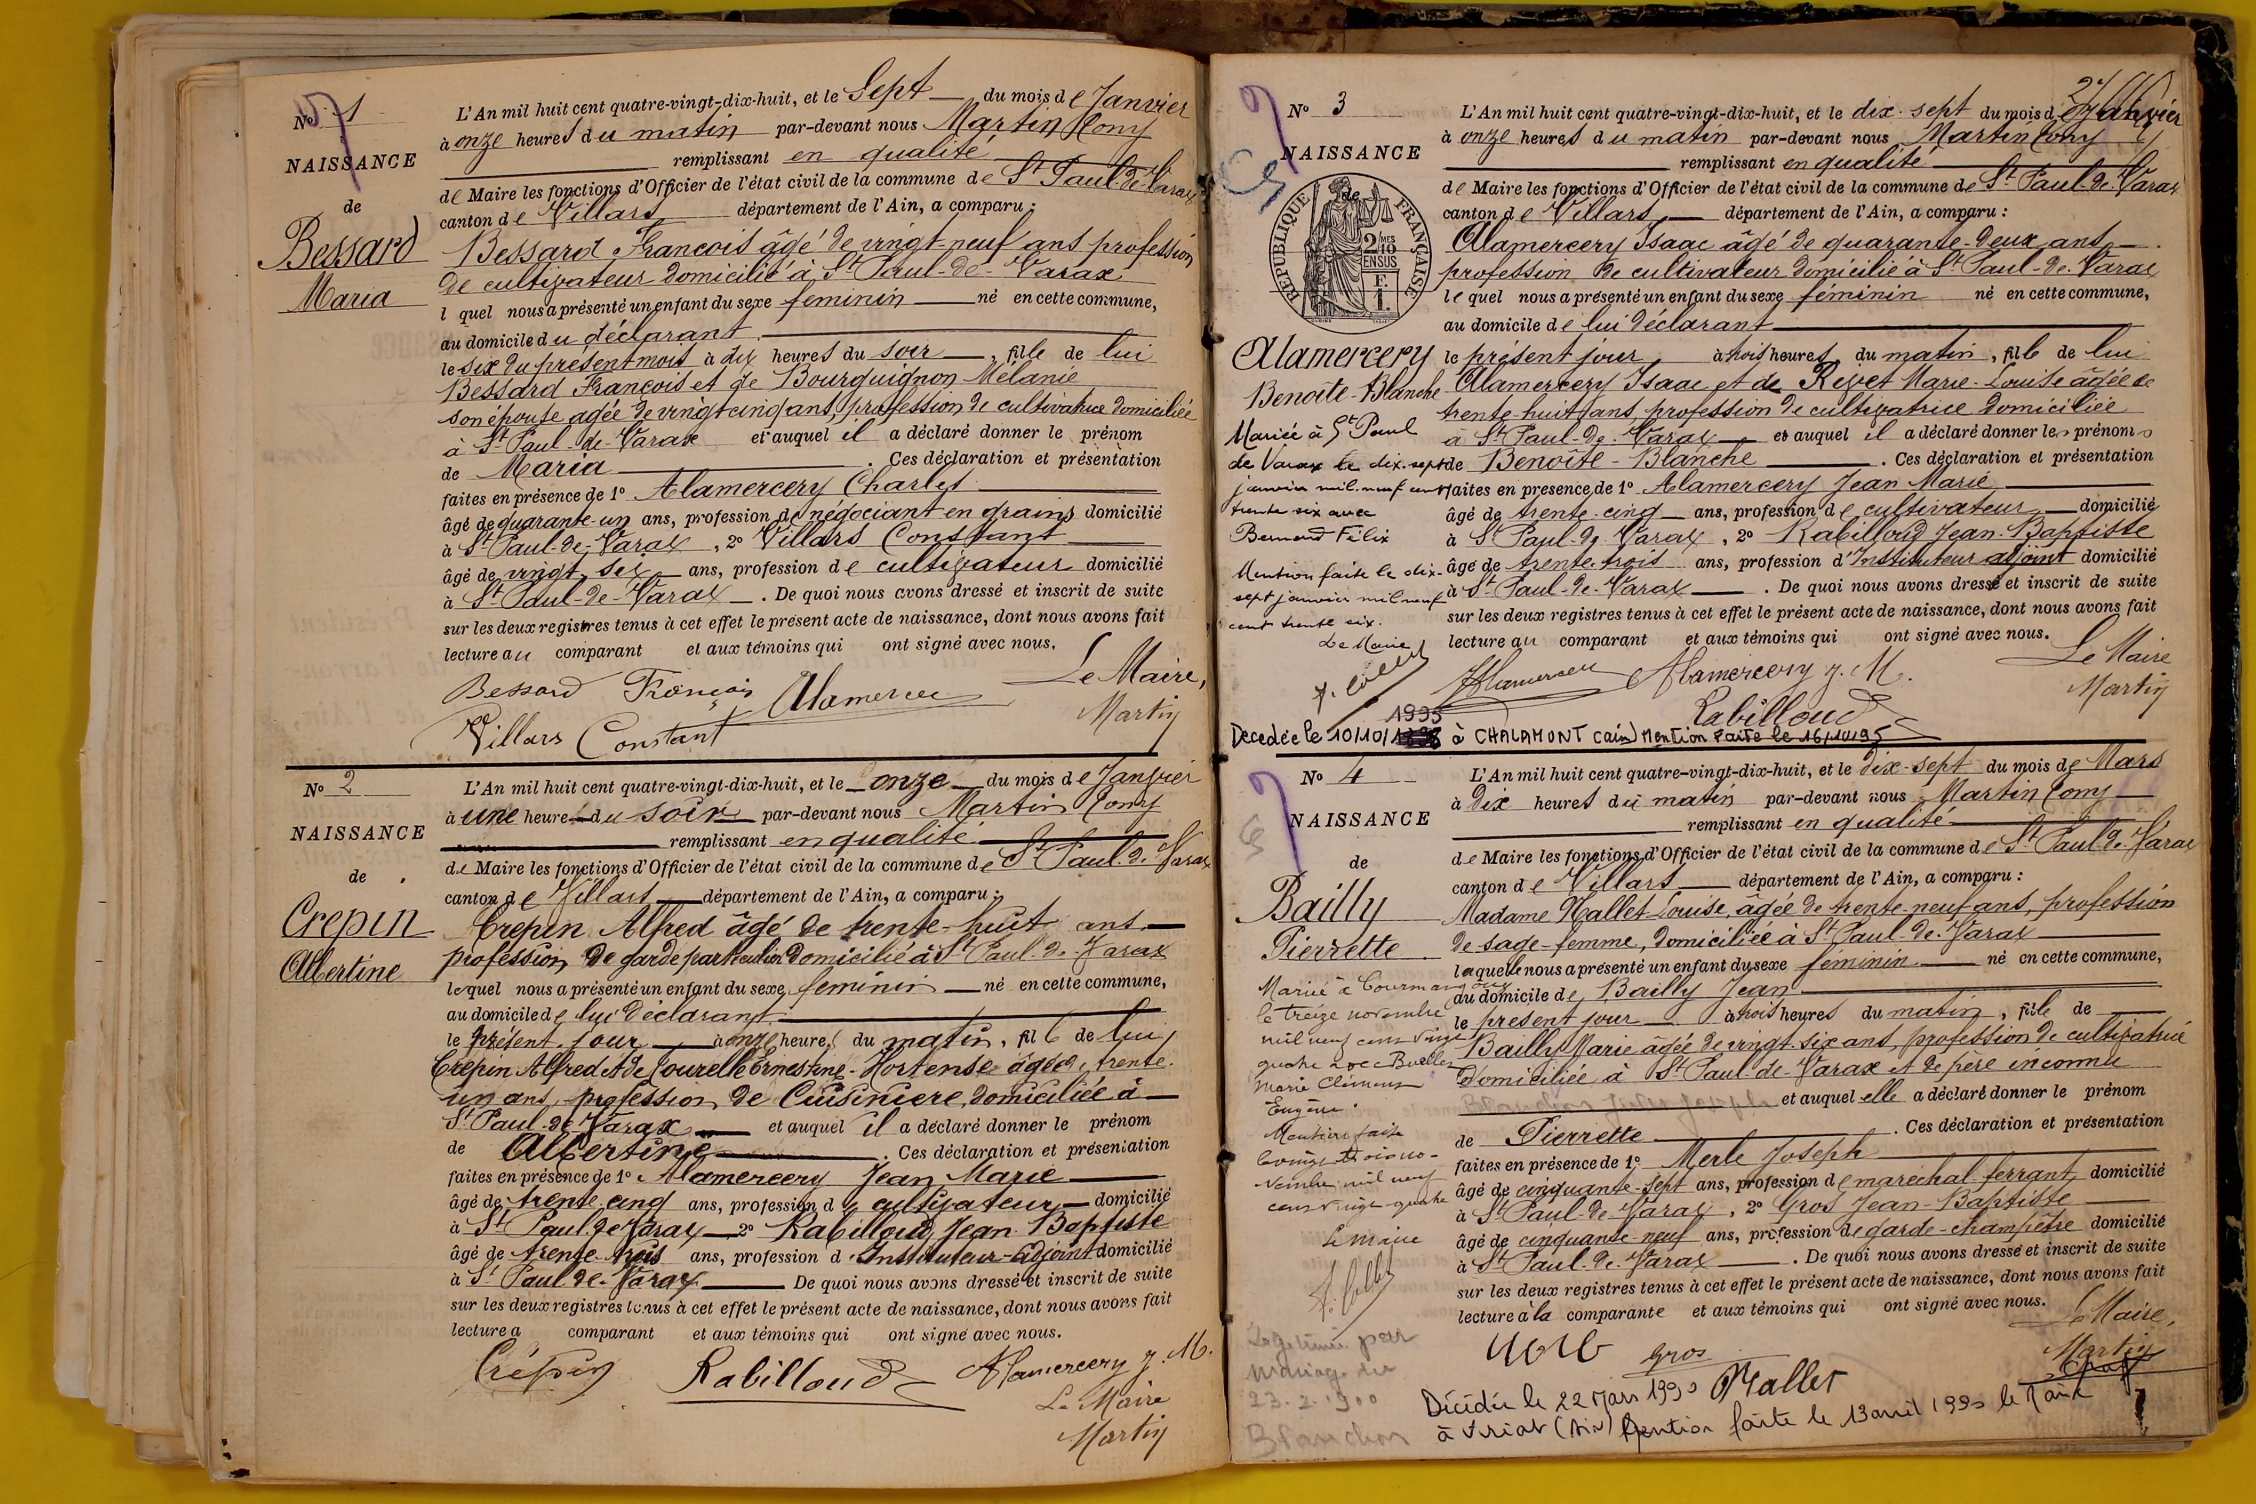 No 1
NAISSANCE
de
Bessard
Maria
L'An mil huit cent quatre-vingt-dix-huit, et le Sept du mois de Janvier
à onze heures du matin par-devant nous Martin Tony
remplissant en qualité
de Maire les fonctions d'Officier de l'état civil de la commune de St Paul-de-Varax
canton de Villars département de l'Ain, a comparu :
Bessard François âgé de vingt-neuf ans profession
de cultivateur domicilié à St Paul-de-Varax
l quel nous a présenté un enfant du sexe feminin né en cette commune,
au domicile du déclarant
le six du présent mois à dix heures du soir, fille de lui
Bessard François et de Bourguignon Mélanie
son épouse agée de vingt cinq ans, profession de cultivatrice domiciliée
à St Paul-de-Varax et auquel il a déclaré donner le prénom
de Maria. Ces déclaration et présentation
faites en présence de 1o Alamercery Charles
âgé de quarante-un ans, profession de négociant en grains domicilié
à St Paul-de-Varax, 2o Villars Constant
âgé de vingt six ans, profession de cultivateur domicilié
à St Paul-de-Varax. De quoi nous avons dressé et inscrit de suite
sur les deux registres tenus à cet effet le présent acte de naissance, dont nous avons fait
lecture au comparant et aux témoins qui ont signé avec nous.
Bessard François Alamercery Le Maire,
Villars Constant Martin
No 2
NAISSANCE
de
Crepin
Albertine
L'An mil huit cent quatre-vingt-dix-huit, et le onze du mois de Janvier
à une heure du soir par-devant nous Martin Tony
remplissant en qualité
de Maire les fonctions d'Officier de l'état civil de la commune de St Paul-de-Varax
canton de Villars département de l'Ain, a comparu :
Crépin Alfred âgé de trente-huit ans
profession de garde particulier domicilié à St Paul-de-Varax
lequel nous a présenté un enfant du sexe féminin né en cette commune,
au domicile de lui déclarant
le présent jour à onze heures du matin, fille de lui
Crépin Alfred et de Tourelle Ernestine-Hortense âgée de trente-
un ans, profession de Cuisiniere, domiciliée à
St Paul-de-Varax et auquel il a déclaré donner le prénom
de Albertine. Ces déclaration et présentation
faites en présence de 1o Alamercery Jean Marie
âgé de trente cinq ans, profession de cultivateur domicilié
à St Paul de Varax 2o Rabilloud Jean-Baptiste
âgé de trente-trois ans, profession d'Instituteur-Adjoint domicilié
à St Paul-de-Varax De quoi nous avons dressé et inscrit de suite
sur les deux registres tenus à cet effet le présent acte de naissance, dont nous avons fait
lecture a comparant et aux témoins qui ont signé avec nous.
Crépin Rabilloud Alamercery J. M.
Le Maire
Martin
No 3
NAISSANCE
de
RÉPUBLIQUE FRANÇAISE
2/10MES
EN SUS
Alamercery
Benoîte-Blanche
Mariée à St Paul
de Varax le dix-sept
janvier mil-neuf cent
trente six avec
Bernard Félix
Mention faite le dix-
sept janvier mil neuf
cent trente six.
Le Maire
L'An mil huit cent quatre-vingt-dix-huit, et le dix-sept du mois de Janvier
à onze heures du matin par-devant nous Martin Tony
remplissant en qualité
de Maire les fonctions d'Officier de l'état civil de la commune de St Paul-de-Varax
canton de Villars département de l'Ain, a comparu :
Alamercery Isaac âgé de quarante-deux ans
profession de cultivateur domicilié à St Paul-de-Varax
lequel nous a présenté un enfant du sexe féminin né en cette commune,
au domicile de lui déclarant
le présent jour à trois heures du matin, fille de lui
Alamercery Isaac et de Rivet Marie-Louise âgée de
trente-huit ans, profession de cultivatrice domiciliée
à St Paul-de-Varax et auquel il a déclaré donner les prénoms
de Benoîte-Blanche. Ces déclaration et présentation
faites en présence de 1o Alamercery Jean Marie
âgé de trente-cinq ans, profession de cultivateur domicilié
à St Paul-de-Varax, 2o Rabilloud Jean-Baptiste
âgé de trente-trois ans, profession d'Instituteur adjoint domicilié
à St Paul-de-Varax. De quoi nous avons dressé et inscrit de suite
sur les deux registres tenus à cet effet le présent acte de naissance, dont nous avons fait
lecture au comparant et aux témoins qui ont signé avec nous.
Alamercery Alamercery J. M. Le Maire
Rabilloud Martin
1995
Decedée le 10/10/ à CHALAMONT (ain) Mention Faite le 16/10/95
No 4
NAISSANCE
de
Bailly
Pierrette
Mariée à Courmangoux
le treize novembre
mil neuf cent vingt
quatre avec
Marie Clément
Eugène.
Mention faite
le vingt trois no-
vembre mil neuf
cent vingt quatre
Le maire
Légitimée par
mariage du
23.2.1900
Blanchon
L'An mil huit cent quatre-vingt-dix-huit, et le dix-sept du mois de Mars
à dix heures du matin par-devant nous Martin Tony
remplissant en qualité
de Maire les fonctions d'Officier de l'état civil de la commune de St Paul-de-Varax
canton de Villars département de l'Ain, a comparu :
Madame Mallet Louise, âgée de trente-neuf ans, profession
de sage-femme, domiciliée à St Paul-de-Varax
laquelle nous a présenté un enfant du sexe féminin né en cette commune,
au domicile de Bailly Jean
le présent jour à trois heures du matin, fille de
Bailly Marie âgée de vingt-six ans, profession de cultivatrice
domiciliée à St Paul-de-Varax et de père inconnu
et auquel elle a déclaré donner le prénom
de Pierrette. Ces déclaration et présentation
faites en présence de 1o Merle Joseph
âgé de cinquante-sept ans, profession de maréchal ferrant domicilié
à St Paul-de-Varax, 2o Gros Jean-Baptiste
âgé de cinquante-neuf ans, profession de garde-champêtre domicilié
à St Paul-de-Varax. De quoi nous avons dressé et inscrit de suite
sur les deux registres tenus à cet effet le présent acte de naissance, dont nous avons fait
lecture à la comparante et aux témoins qui ont signé avec nous.
Merle Gros Mallet Le Maire,
Martin
Décédée le 22 mars 1990
à Viriat (Ain) Mention faite le 13 avril 1990 le Maire